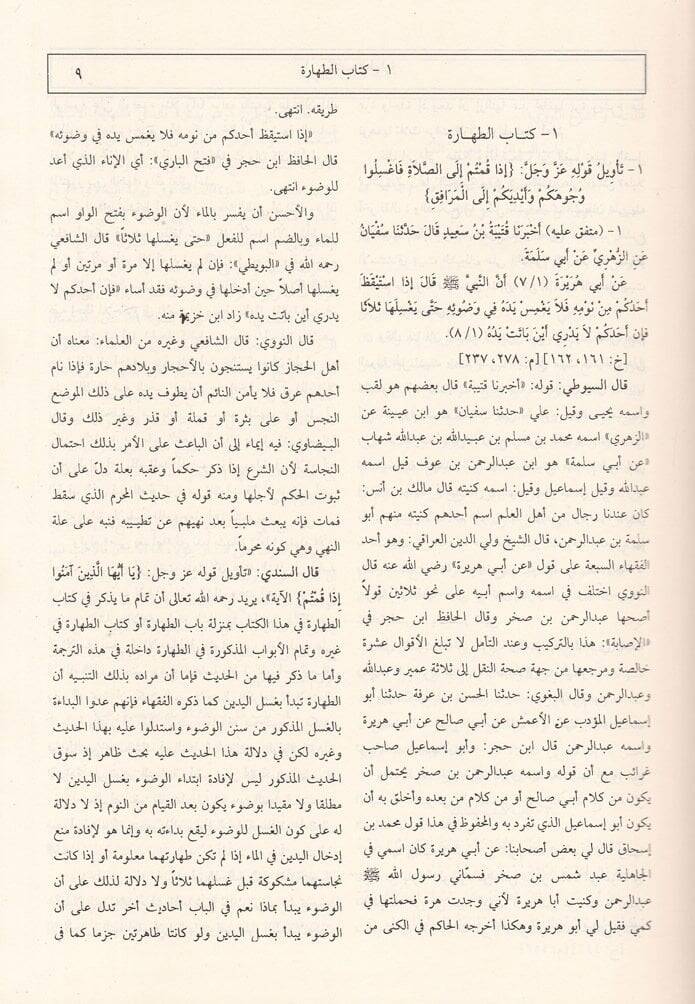 ١ - كتاب الطهارة
٩
١- كتـاب الطهـارة
١- تَأوِيلُ قَوْلِهِ عَزَّ وَجَلَّ: {إِذَا قُمْتُمْ إِلَى الصَّلَاةِ فَاغْسِلُوا
وُجُوهَكُمْ وَأَيْدِيَكُمْ إِلَى الْمَرَافِقِ}
١- (متفق عليه) أَخْبَرَنَا قُتَيْبَةُ بْنُ سَعِيدٍ قَالَ حَدَّثَنَا سُفْيَانُ
عَنِ الزُّهْرِيِّ عَنْ أَبِي سَلَمَةَ.
عَنْ أَبِي هُرَيْرَةَ (٧/١) أَنَّ النَّبِيَّ ﷺ قَالَ إِذَا اسْتَيْقَظَ
أَحَدُكُمْ مِنْ نَوْمِهِ فَلَا يَغْمِسْ يَدَهُ فِي وَضُوئِهِ حَتَّى يَغْسِلَهَا ثَلَاثًا
فَإِن أَحَدَكُمْ لَا يَدْرِي أَيْنَ بَاتَتْ يَدُهُ (٨/١).
[خ: ١٦١، ١٦٢] [م: ٢٧٨، ٢٣٧]
قال السيوطي: قوله: «أخبرنا قتيبة» قال بعضهم هو لقب
واسمه يحيى وقيل: علي «حدثنا سفيان» هو ابن عيينة عن
«الزهري» اسمه محمد بن مسلم بن عبيدالله بن عبدالله شهاب
«عن أبي سلمة» هو ابن عبدالرحمن بن عوف قيل اسمه
عبدالله وقيل إسماعيل وقيل: اسمه كنيته قال مالك بن أنس:
كان عندنا رجال من أهل العلم اسم أحدهم كنيته منهم أبو
سلمة بن عبدالرحمن، قال الشيخ ولي الدين العراقي: وهو أحد
الفقهاء السبعة على قول «عن أبي هريرة» رضي الله عنه قال
النووي اختلف في اسمه واسم أبيه على نحو ثلاثين قولاً
أصحها عبدالرحمن بن صخر وقال الحافظ ابن حجر في
«الإصابة»: هذا بالتركيب وعند التأمل لا تبلغ الأقوال عشرة
خالصة ومرجعها من جهة صحة النقل إلى ثلاثة عمير وعبدالله
وعبدالرحمن وقال البغوي: حدثنا الحسن بن عرفة حدثنا أبو
إسماعيل المؤدب عن الأعمش عن أبي صالح عن أبي هريرة
واسمه عبدالرحمن قال ابن حجر: وأبو إسماعيل صاحب
غرائب مع أن قوله واسمه عبدالرحمن بن صخر يحتمل أن
يكون من كلام أبي صالح أو من كلام من بعده وأخلق به أن
يكون أبو إسماعيل الذي تفرد به والمحفوظ في هذا قول محمد بن
إسحاق قال لي بعض أصحابنا: عن أبي هريرة كان اسمي في
الجاهلية عبد شمس بن صخر فسمّاني رسول الله ﷺ
عبدالرحمن وكنيت أبا هريرة لأني وجدت هرة فحملتها في
كمي فقيل لي أبو هريرة وهكذا أخرجه الحاكم في الكنى من
طريقه. انتهى.
«إذا استيقظ أحدكم من نومه فلا يغمس يده في وضوئه»
قال الحافظ ابن حجر في «فتح الباري»: أي الإناء الذي أعد
للوضوء انتهى.
والأحسن أن يفسر بالماء لأن الوضوء بفتح الواو اسم
للماء وبالضم اسم للفعل «حتى يغسلها ثلاثاً» قال الشافعي
رحمه الله في «البويطي»: فإن لم يغسلها إلا مرة أو مرتين أو لم
يغسلها أصلاً حين أدخلها في وضوئه فقد أساء «فإن أحدكم لا
يدري أين باتت يده» زاد ابن خزيمة منه.
قال النووي: قال الشافعي وغيره من العلماء: معناه أن
أهل الحجاز كانوا يستنجون بالأحجار وبلادهم حارة فإذا نام
أحدهم عرق فلا يأمن النائم أن يطوف يده على ذلك الموضع
النجس أو على بثرة أو قملة أو قذر وغير ذلك وقال
البيضاوي: فيه إيماء إلى أن الباعث على الأمر بذلك احتمال
النجاسة لأن الشرع إذا ذكر حكماً وعقبه بعلة دلّ على أن
ثبوت الحكم لأجلها ومنه قوله في حديث المحرم الذي سقط
فمات فإنه يبعث ملبياً بعد نهيهم عن تطييبه فنبه على علة
النهي وهي كونه محرماً.
قال السندي: «تأويل قوله عز وجل: {يَا أَيُّهَا الَّذِينَ آمَنُوا
إِذَا قُمْتُمْ} الآية»، يريد رحمه الله تعالى أن تمام ما يذكر في كتاب
الطهارة في هذا الكتاب بمنزلة باب الطهارة أو كتاب الطهارة في
غيره وتمام الأبواب المذكورة في الطهارة داخلة في هذه الترجمة
وأما ما ذكر فيها من الحديث فإما أن مراده بذلك التنبـيه أن
الطهارة تبدأ بغسل اليدين كما ذكره الفقهاء فإنهم عدوا البداءة
بالغسل المذكور من سنن الوضوء واستدلوا عليه بهذا الحديث
وغيره لكن في دلالة هذا الحديث عليه بحث ظاهر إذ سوق
الحديث المذكور ليس لإفادة ابتداء الوضوء بغسل اليدين لا
مطلقا ولا مقيدا بوضوء يكون بعد القيام من النوم إذ لا دلالة
له على كون الغسل للوضوء ليقع بداءته به وإنما هو لإفادة منع
إدخال اليدين في الماء إذا لم تكن طهارتهما معلومة أو إذا كانت
نجاستهما مشكوكة قبل غسلهما ثلاثاً ولا دلالة لذلك على أن
الوضوء يبدأ بماذا نعم في الباب أحاديث أخر تدل على أن
الوضوء يبدأ بغسل اليدين ولو كانتا طاهرتين جزما كما في